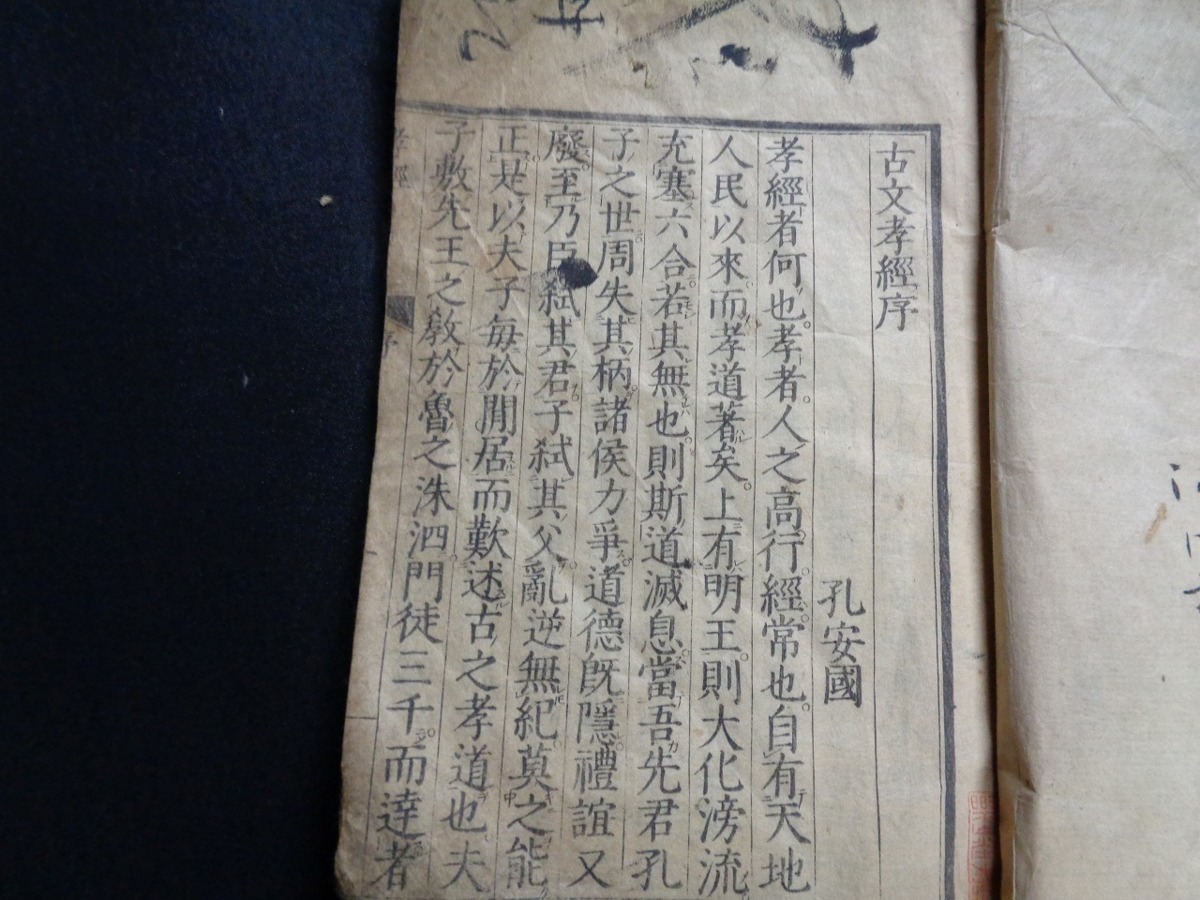 古文孝經序
孔安國
孝經者何也。孝者。人之高行。經常也。自有天地
人民以來。而孝道著矣。上有明王。則大化滂流
充塞六合。若其無也。則斯道滅息。當吾先君孔
子之世。周失其柄。諸侯力爭。道德既隱。禮誼又
廢。至乃臣弑其君。子弑其父。亂逆無紀。莫之能
正。是以夫子每於閒居。而歎述古之孝道也。夫
子敷先王之教於魯之洙泗。門徒三千。而達者
孝經
序